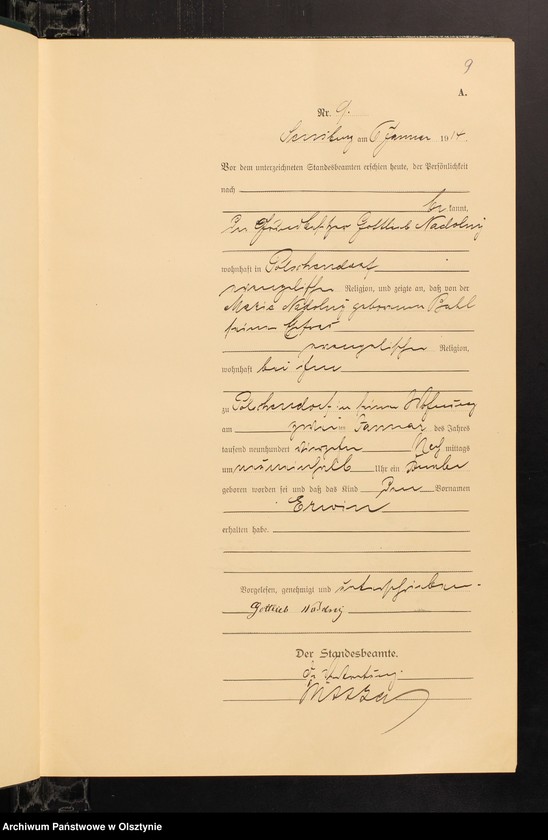 9
A.
Nr. 9.
am 6 Januar 1914.
Vor dem unterzeichneten Standesbeamten erschien heute, der Persönlichkeit
nach
kannt,
Gottlieb Nadolny
wohnhaft in
evangelischer Religion, und zeigte an, daß von der
Maria Nadolny geborenen Bahl
seiner Ehefrau
evangelischer Religion,
wohnhaft bei ihm
zu in seiner Wohnung
am Januar des Jahres
tausend neunhundert vierzehn Nachmittags
um Uhr ein Knabe
geboren worden sei und daß das Kind den Vornamen
Erwin
erhalten habe.
Vorgelesen, genehmigt und unterschrieben.
Gottlieb Nadolny
Der Standesbeamte.
In Vertretung.
Archiwum Państwowe w Olsztynie